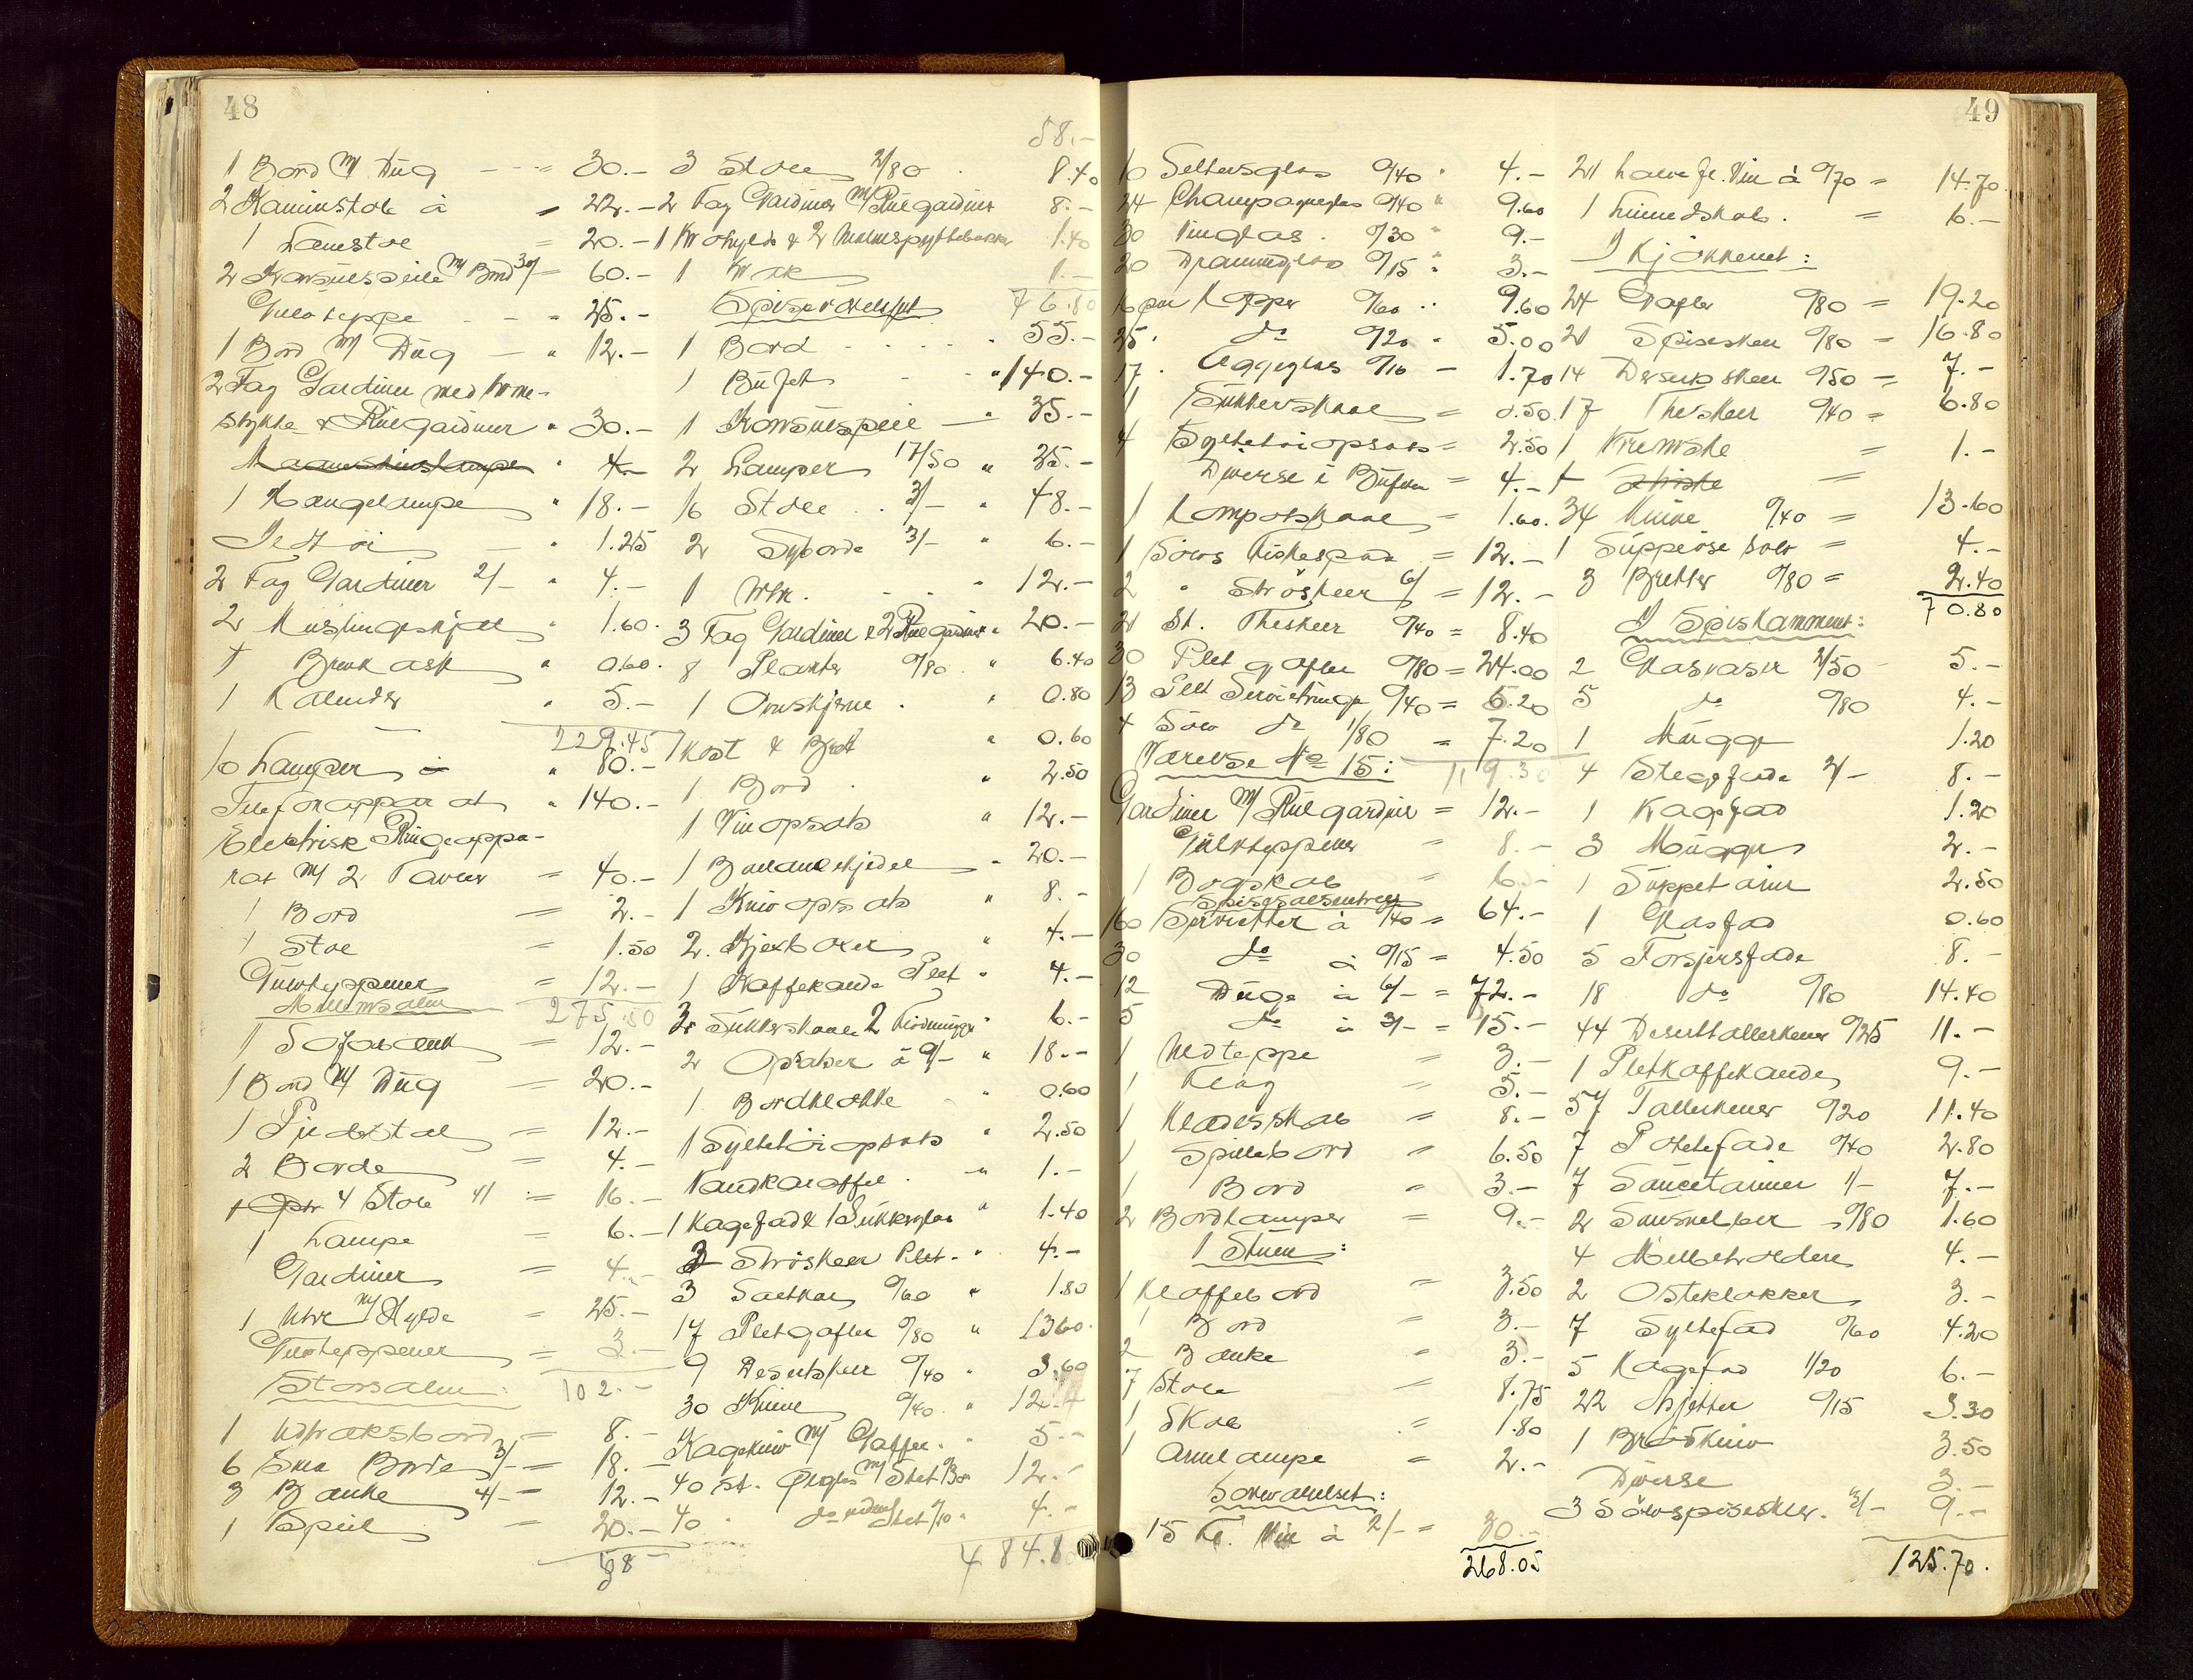 48
1 Bord m/ Dug - - = 30.-
2 Kaminstole à = 22.-
1 Lænestol = 20.-
2 Konsulspeile m/ Bord 30/ = 60.-
Gulvteppe - - = 25.-
1 Bord m/ Dug - " 12.-
2 Fag Gardiner med
stykke & Rulgardiner " 30.-
" 4.-
1 Hængelampe " 18.-
" 1.25
2 Fag Gardiner 2/- " 4.-
2 Muslingskjæl " 1.60.
1 ask " 0.60.
1 Kalender " 5.-
229.45
10 Lamper à " 80.-
Telefonapparat " 140.-
Elektrisk Ringeappa-
rat m/ 2 Tavler = 40.-
1 Bord = 2.-
1 Stol = 1.50
Gulvteppener = 12.-
Mellemsalen 275.50
1 Sofabenk = 12.-
1 Bord m/ Dug = 20.-
1 Piedestal = 12.-
2 Borde = 4.-
4 Stole 4/ = 16.-
1 Lampe = 6.-
Gardiner = 4.-
1 Uhr m/ Hylde = 25.-
Gulvteppener = 3.-
Storsalen: 102.-
1 Udtræksbord = 8.-
6 Smaa Borde 3/- = 18.-
3 Bænke 4/- = 12.-
1 Speil = 20.-
58
58.-
3 Stole 2/80 8.40
2 Fag Gardiner m/ Rulgardiner 8.-
1 & 2 1.40
1 Krak 1.-
Spiseværelset 76.80
1 Bord 55.-
1 Bufet " 140.-
1 Konsulspeil " 35.-
2 Lamper 17/50 " 35.-
16 Stole 3/- " 48.-
2 Syborde 3/- " 6.-
1 Uhr. " 12.-
3 Fag Gardiner & 2 Rulgardiner " 20.-
8 Planter 0/80 " 6.40
1 Ovnskjerm " 0.80
1 Kost & Brett " 0.60
1 Bord " 2.50
1 Vinopsats " 12.-
1 " 20.-
1 Knivopsats " 8.-
2 Kjexboxer " 4.-
1 Kaffekande Plet " 4.-
3 Sukkerskaale 2 Flødemugger " 6.-
2 Opsatser à 9/- " 18.-
1 Bordklokke " 0.60
1 Syltetøiopsats " 2.50
Vandkaraffel " 1.-
1 Kagefad & 1 Sukkerglas " 1.40
2 Strøskeer Plet. " 4.-
3 Saltkar 0/60 " 1.80
17 Pletgafler 0/80 " 13.60
9 Desertskeer 0/40 " 3.60
30 Knive 0/40 " 12.-
Kagekniv m/ Gaffel " 5.-
40 st. Ølglas m/ Stet 0/30 12.-
40 " do uden Stet 0/10 " 4.-
484.80
49
10 Seltersglas 0/40 " 4.-
24 Champagneglas 0/40 " 9.60
30 Vinglas 0/30 " 9.-
20 Drammeglas 0/15 " 3.-
16 par Kopper 0/60 " 9.60
25 " do 0/20 " 5.00
17 Æggeglas 0/10 - 1.70
1 Sukkerskaal = 0.50
4 Syltetøiopsats = 2.50
Diverse i Bufeen = 4.-
1 Kompotskaal = 1.60.
1 Sølvs Fiskespade = 12.-
2 " Strøskeer 6/ = 12.-
21 St. Theskeer 0/40 = 8.40
30 Plet gafler 0/80 = 24.00
13 Plet Servietringe 0/40 = 5.20
4 Sølv do 1/80 = 7.20
Værelse No 15: 119.30
Gardiner m/ Rulgardiner = 12.-
Gulvteppener = 8.-
1 Bogskab = 6.-
160 Servietter à 0/40 = 64.-
30 do à 0/15 = 4.50
12 Duge à 6/- = 72.-
5 do à 3/- = 15.-
1 Uldteppe = 3.-
1 Flag = 5.-
1 Klædesskab = 8.-
1 Spillebord = 6.50
1 Bord = 3.-
2 Bordlamper = 9.-
I Stuen:
1 Klaffebord = 3.50
1 Bord = 3.-
2 Bænke = 3.-
7 Stole = 8.75
1 Skab = 1.80
1 Armlampe = 2.-
15 Fl. Vin à 2/- = 30.-
268.05
21 halve fl. Vin à 0/70 = 14.70
1 Linnedskab. = 6.-
I Kjøkkenet:
24 Gafler 0/80 = 19.20
21 Spiseskeer 0/80 = 16.80
14 Desertskeer 0/50 = 7.-
17 Theskeer 0/40 = 6.80
1 = 1.-
1 =
34 Knive 0/40 = 13.60
1 Suppeøse sølv = 4.-
3 Bretter 0/80 = 2.40
70.80
I Spiskammeret:
2 Glasvaser 2/50 5.-
5 do 0/80 4.-
1 Mugge 1.20
4 Stegefade 2/- 8.-
1 Kagefad 1.20
3 Mugger 2.-
1 Suppetarin 2.50
1 Glasfad 0.60
5 Forsjersfade 8.-
18 do 0/80 14.40
44 Deserttallerkener 0/25 11.-
1 Pletkaffekande 9.-
57 Tallerkener 0/20 11.40
7 Potetefade 0/40 2.80
7 Saucetariner 1/- 7.-
2 0/80 1.60
4 Melbeholdere 4.-
2 Osteklokker 3.-
7 Syltefad 0/60 4.20
5 Kagefad 1/20 6.-
22 Asjetter 0/15 3.30
1 Brødkniv 3.50
Diverse 3.-
3 Sølvspiseskeer. 3/- 9.-
125.70.